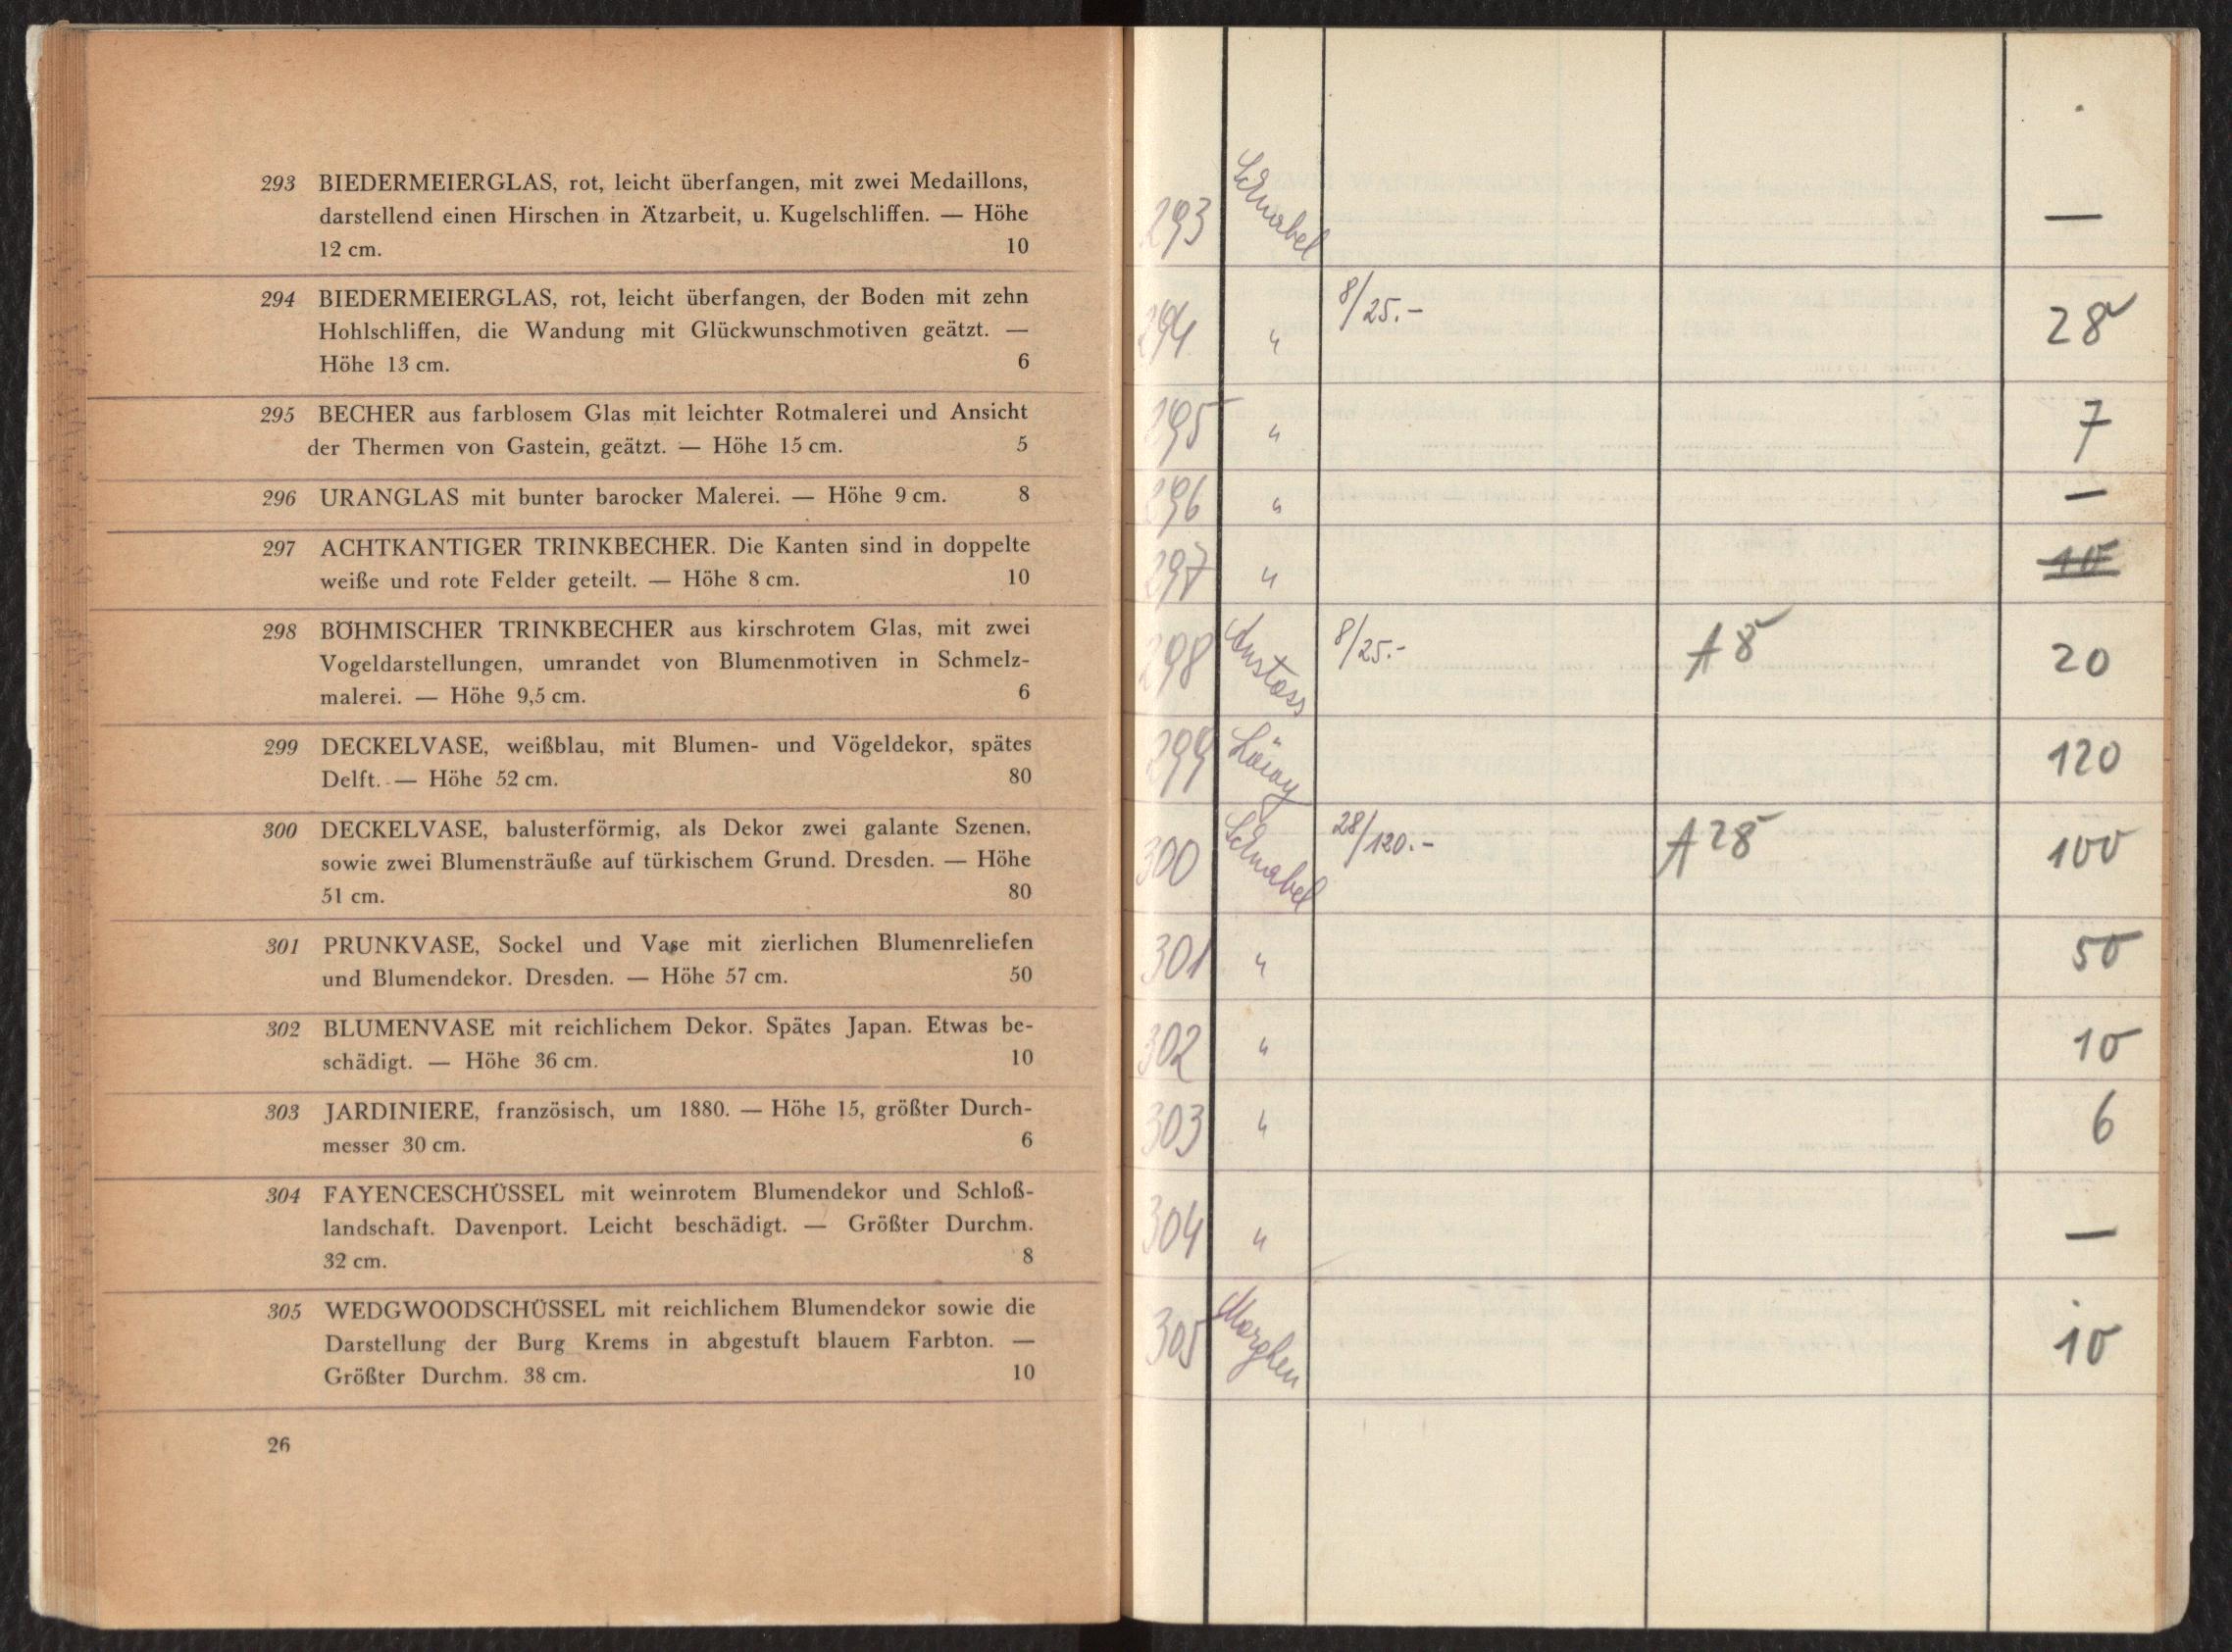 293 BIEDERMEIERGLAS, rot, leicht überfangen, mit zwei Medaillons,
darstellend einen Hirschen in Ätzarbeit, u. Kugelschliffen. — Höhe
12 cm. 10
294 BIEDERMEIERGLAS, rot, leicht überfangen, der Boden mit zehn
Hohlschliffen, die Wandung mit Glückwunschmotiven geätzt. —
Höhe 13 cm. 6
295 BECHER aus farblosem Glas mit leichter Rotmalerei und Ansicht
der Thermen von Gastein, geätzt. — Höhe 15 cm. 5
296 URANGLAS mit bunter barocker Malerei. — Höhe 9 cm. 8
297 ACHTKANTIGER TRINKBECHER. Die Kanten sind in doppelte
weiße und rote Felder geteilt. — Höhe 8 cm. 10
298 BÖHMISCHER TRINKBECHER aus kirschrotem Glas, mit zwei
Vogeldarstellungen, umrandet von Blumenmotiven in Schmelz-
malerei. — Höhe 9,5 cm. 6
299 DECKELVASE, weißblau, mit Blumen- und Vögeldekor, spätes
Delft. — Höhe 52 cm. 80
300 DECKELVASE, balusterförmig, als Dekor zwei galante Szenen,
sowie zwei Blumensträuße auf türkischem Grund. Dresden. — Höhe
51 cm. 80
301 PRUNKVASE, Sockel und Vase mit zierlichen Blumenreliefen
und Blumendekor. Dresden. — Höhe 57 cm. 50
302 BLUMENVASE mit reichlichem Dekor. Spätes Japan. Etwas be-
schädigt. — Höhe 36 cm. 10
303 JARDINIERE, französisch, um 1880. — Höhe 15, größter Durch-
messer 30 cm. 6
304 FAYENCESCHÜSSEL mit weinrotem Blumendekor und Schloß-
landschaft. Davenport. Leicht beschädigt. — Größter Durchm.
32 cm. 8
305 WEDGWOODSCHÜSSEL mit reichlichem Blumendekor sowie die
Darstellung der Burg Krems in abgestuft blauem Farbton. —
Größter Durchm. 38 cm. 10
26
293 Schnabel —
294 " 8/25.- 28
295 " 7
296 " —
297 " 10
298 8/25.- A 8 20
299 120
300 Schnabel 28/120.- A 28 100
301 " 50
302 " 10
303 " 6
304 " —
305 Morghen 10